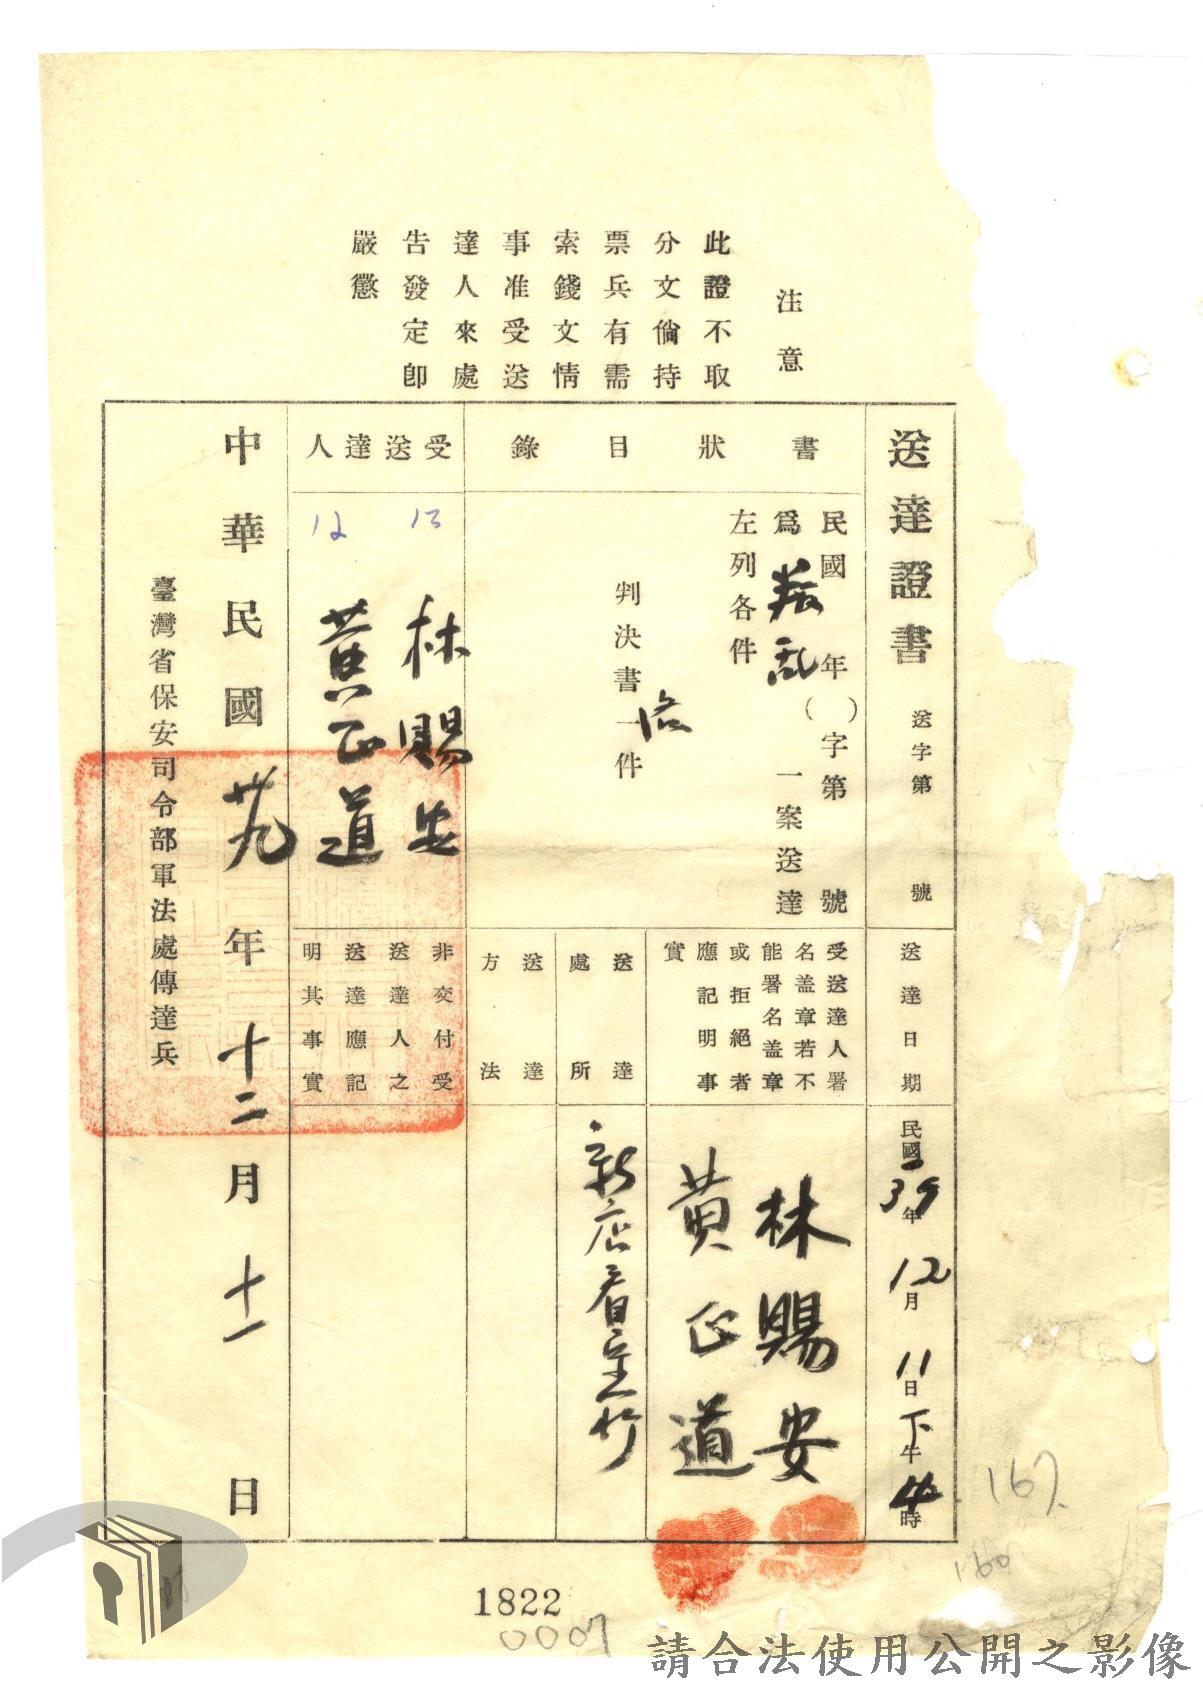 注意
此證不取
分文倘持
票兵有需
索錢文情
事准受送
達人來處
告發定卽
嚴懲
送達證書
送字第 號
書狀目錄
民國 年( )字第 號
爲叛乱一案送達
左列各件
判決書一件
各
受送達人
13
12
林賜安
黃正道
送達日期
民國39年12月11日下午4時
受送達人署
名盖章若不
能署名盖章
或拒絕者
應記明事
實
林賜安
黃正道
送達
處所
新店看
送達
方法
非交付受
送達人之
送達應記
明其事實
中華民國卅九年十二月十一日
臺灣省保安司令部軍法處傳達兵
167.
160
1822
0007
請合法使用公開之影像